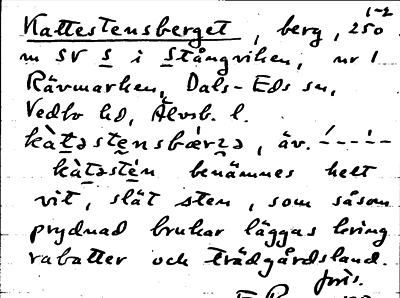 1-2
Kattestensberget, berg, 250
m SV S i Stångviken, nr 1
Rävmarken, Dals-Eds sn,
Vedbo hd, Älvsb. l.
kàt̠əste̠nsbær̠z̠ə, äv.
kàt̠əstén benämnes helt
vit, slät sten, som såsom
prydnad brukar läggas kring
rabatter och trädgårdsland.